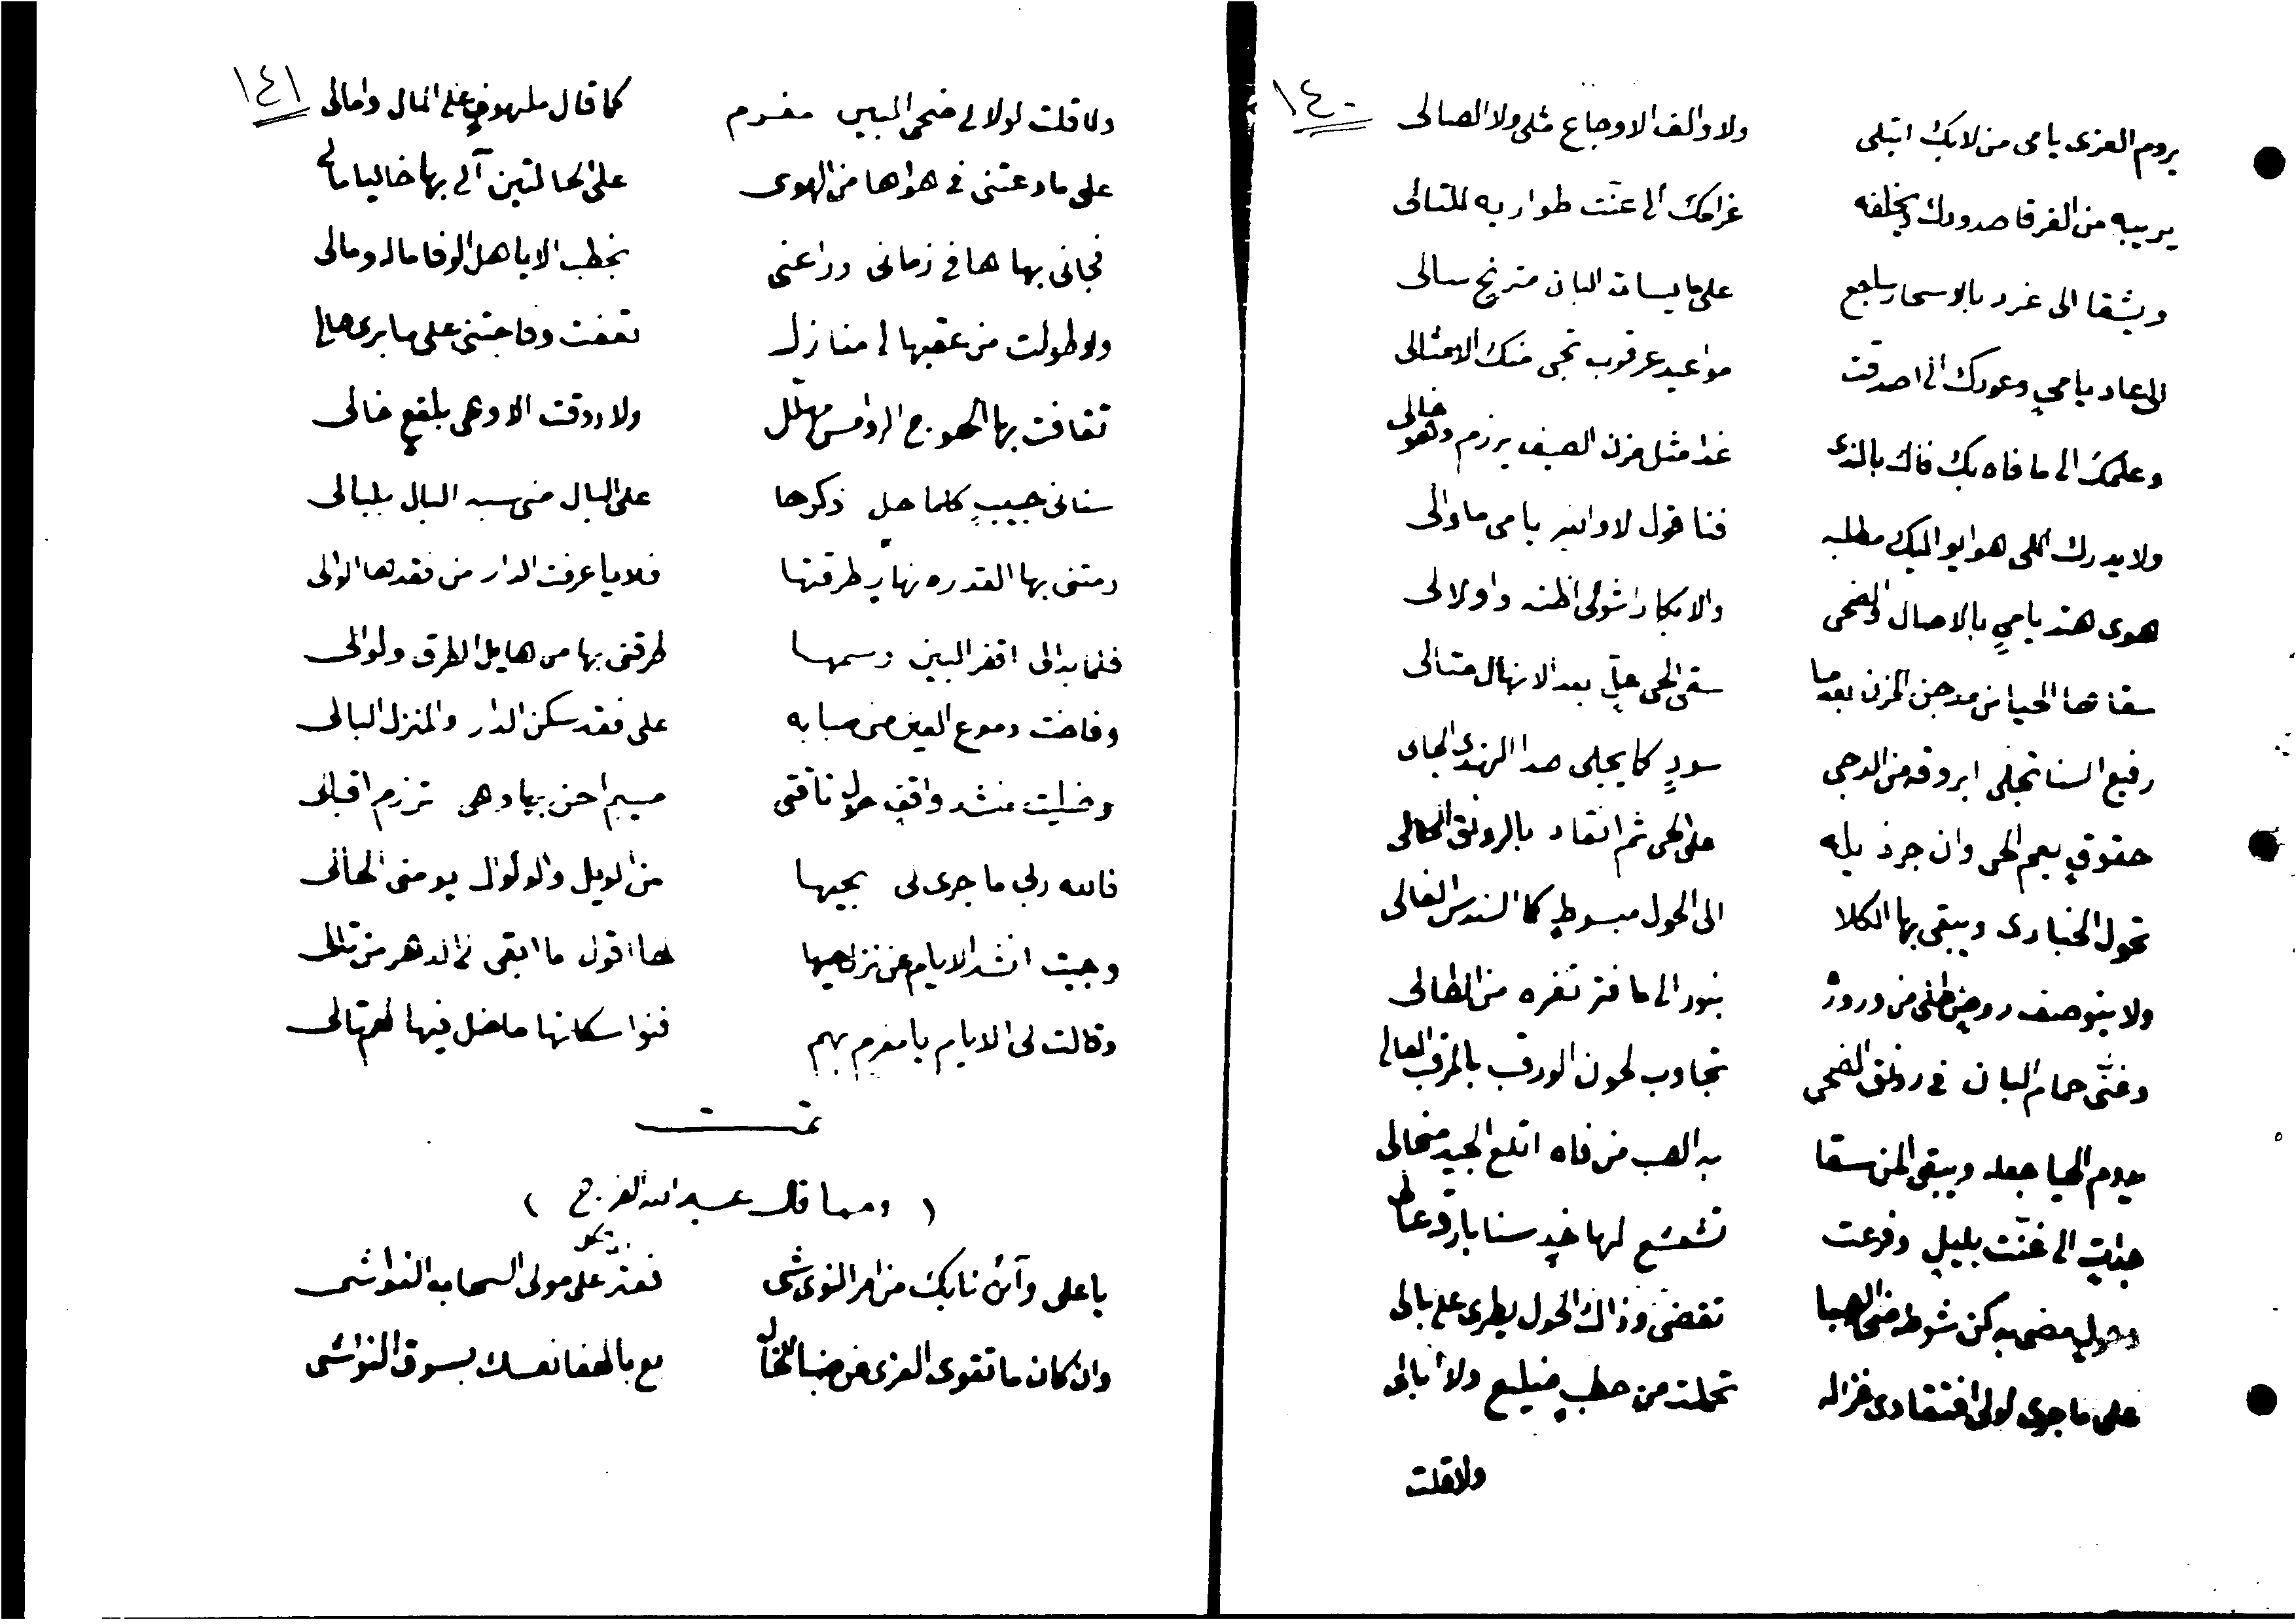 ١٤٠
يروم العزى يا مي من لابك ابتلى ولا والف الاوجاع مثلي ولا الصالي
يريبه من الفرقا صدودك ويخلفه غرامك الى عنّت طواريه للتالي
ويشقا الى غرد بالاسحار ساجع على مايسات البان مترنح سالي
الى عاد يا مي وعودك الى اصدقت مواعيد عرقوب تجي منك الامثالي
وعلمك الى ما فاه بك فاك بالندى غدا مثل مزن الصيف يرزم وهو خالي
ولا يدرك اللي هوايو اليك مطلبه فنا قول لا والنبي يا مي ما والى
هوى هند يا مي بالاصال والضحى والابكار اشوى لي اظنه واولالي
سقاها الحيا من مدجن المزن بعدما سقى الحي حلٍ بعد الانهال متالي
رفيع السنا تجلي ابروقه من الدجى سودٍ كما يجلي صدا الهندي الجالي
حقوقٍ يعم الحي وان جر ذيله على الحي ثم انقاد بالرونق الحالي
تحول الخباري ويبقى بها الكلا الى الحول مبسوطٍ كما السندس الغالي
ولا يتوصف روضٍ من ورود بنور الى ما فتر ثغره من الطالي
وغنّى حمام البان في رونق الضحى تجاوب لحون الورق بالمرقب العالي
يدوم الحيا جعله ويبقى لمن سقا به الصب من فاه اتلع الجيد منحالي
الى غنّت بليلٍ وفرعت تشعشع لها خدٍ سنا بارق عالي
مضى به كن شوط من الصبا تقضى وذاك الحول يطري على بالي
على ما جرى لولى افتقادى غزاله تحملت من خطبٍ فيلع ولا ابالي
ولا قلت
١٤١
ولا قلت لولا لي ضحى البين مغرم كما قال ملهوفٍ على المال وامالي
على ما دعتني في هواها من الهوى على الحالتين آلى بها خاليا مالي
فجاني بها ها في زماني وراعني بخطب الا يا هل الوفا ماله ومالي
ولو طولت من عقبها لي منازل تعفت وفاجتني على ما برى حالي
تقافت بها الهوج الروامس مهلل ولا روقت الا وهي بلقعٍ خالي
سناني حبيبٍ كلما حل ذكرها على البال مني سبه البال بلبالي
رمتني بها القدره نهارٍ طرقتها فلا يا عرفت الدار من فقدها الوالي
فلما بدا لي اقفر البين رسمها طرقني بها من هايل الطرق ولوالي
وفاضت دموع العين مني صبابه على فقد سكن الدار والمنزل البالي
وضليت منشد واقفٍ حول ناقتي احن بها وهي ترزم اقبالي
فالله ربي ما جرى لي بحيها من الويل والولوال يومني الحالي
وجيت انشد الايام عن نزل حيها لها اقول ما ابقى لي الدهر من تالي
وقالت لي الايام يا مغرم بهم فنوا سكانها ما ضل فيها لهم تالي
تمت
( ومما قال عبد الله الفرج )
يا علي وآن نابك من امر النوى شي فعتز على مولى السحاب النواشي
وان كان ما تقوى العزى من ضبا مع بالصفا نعسك بسوق النواشي